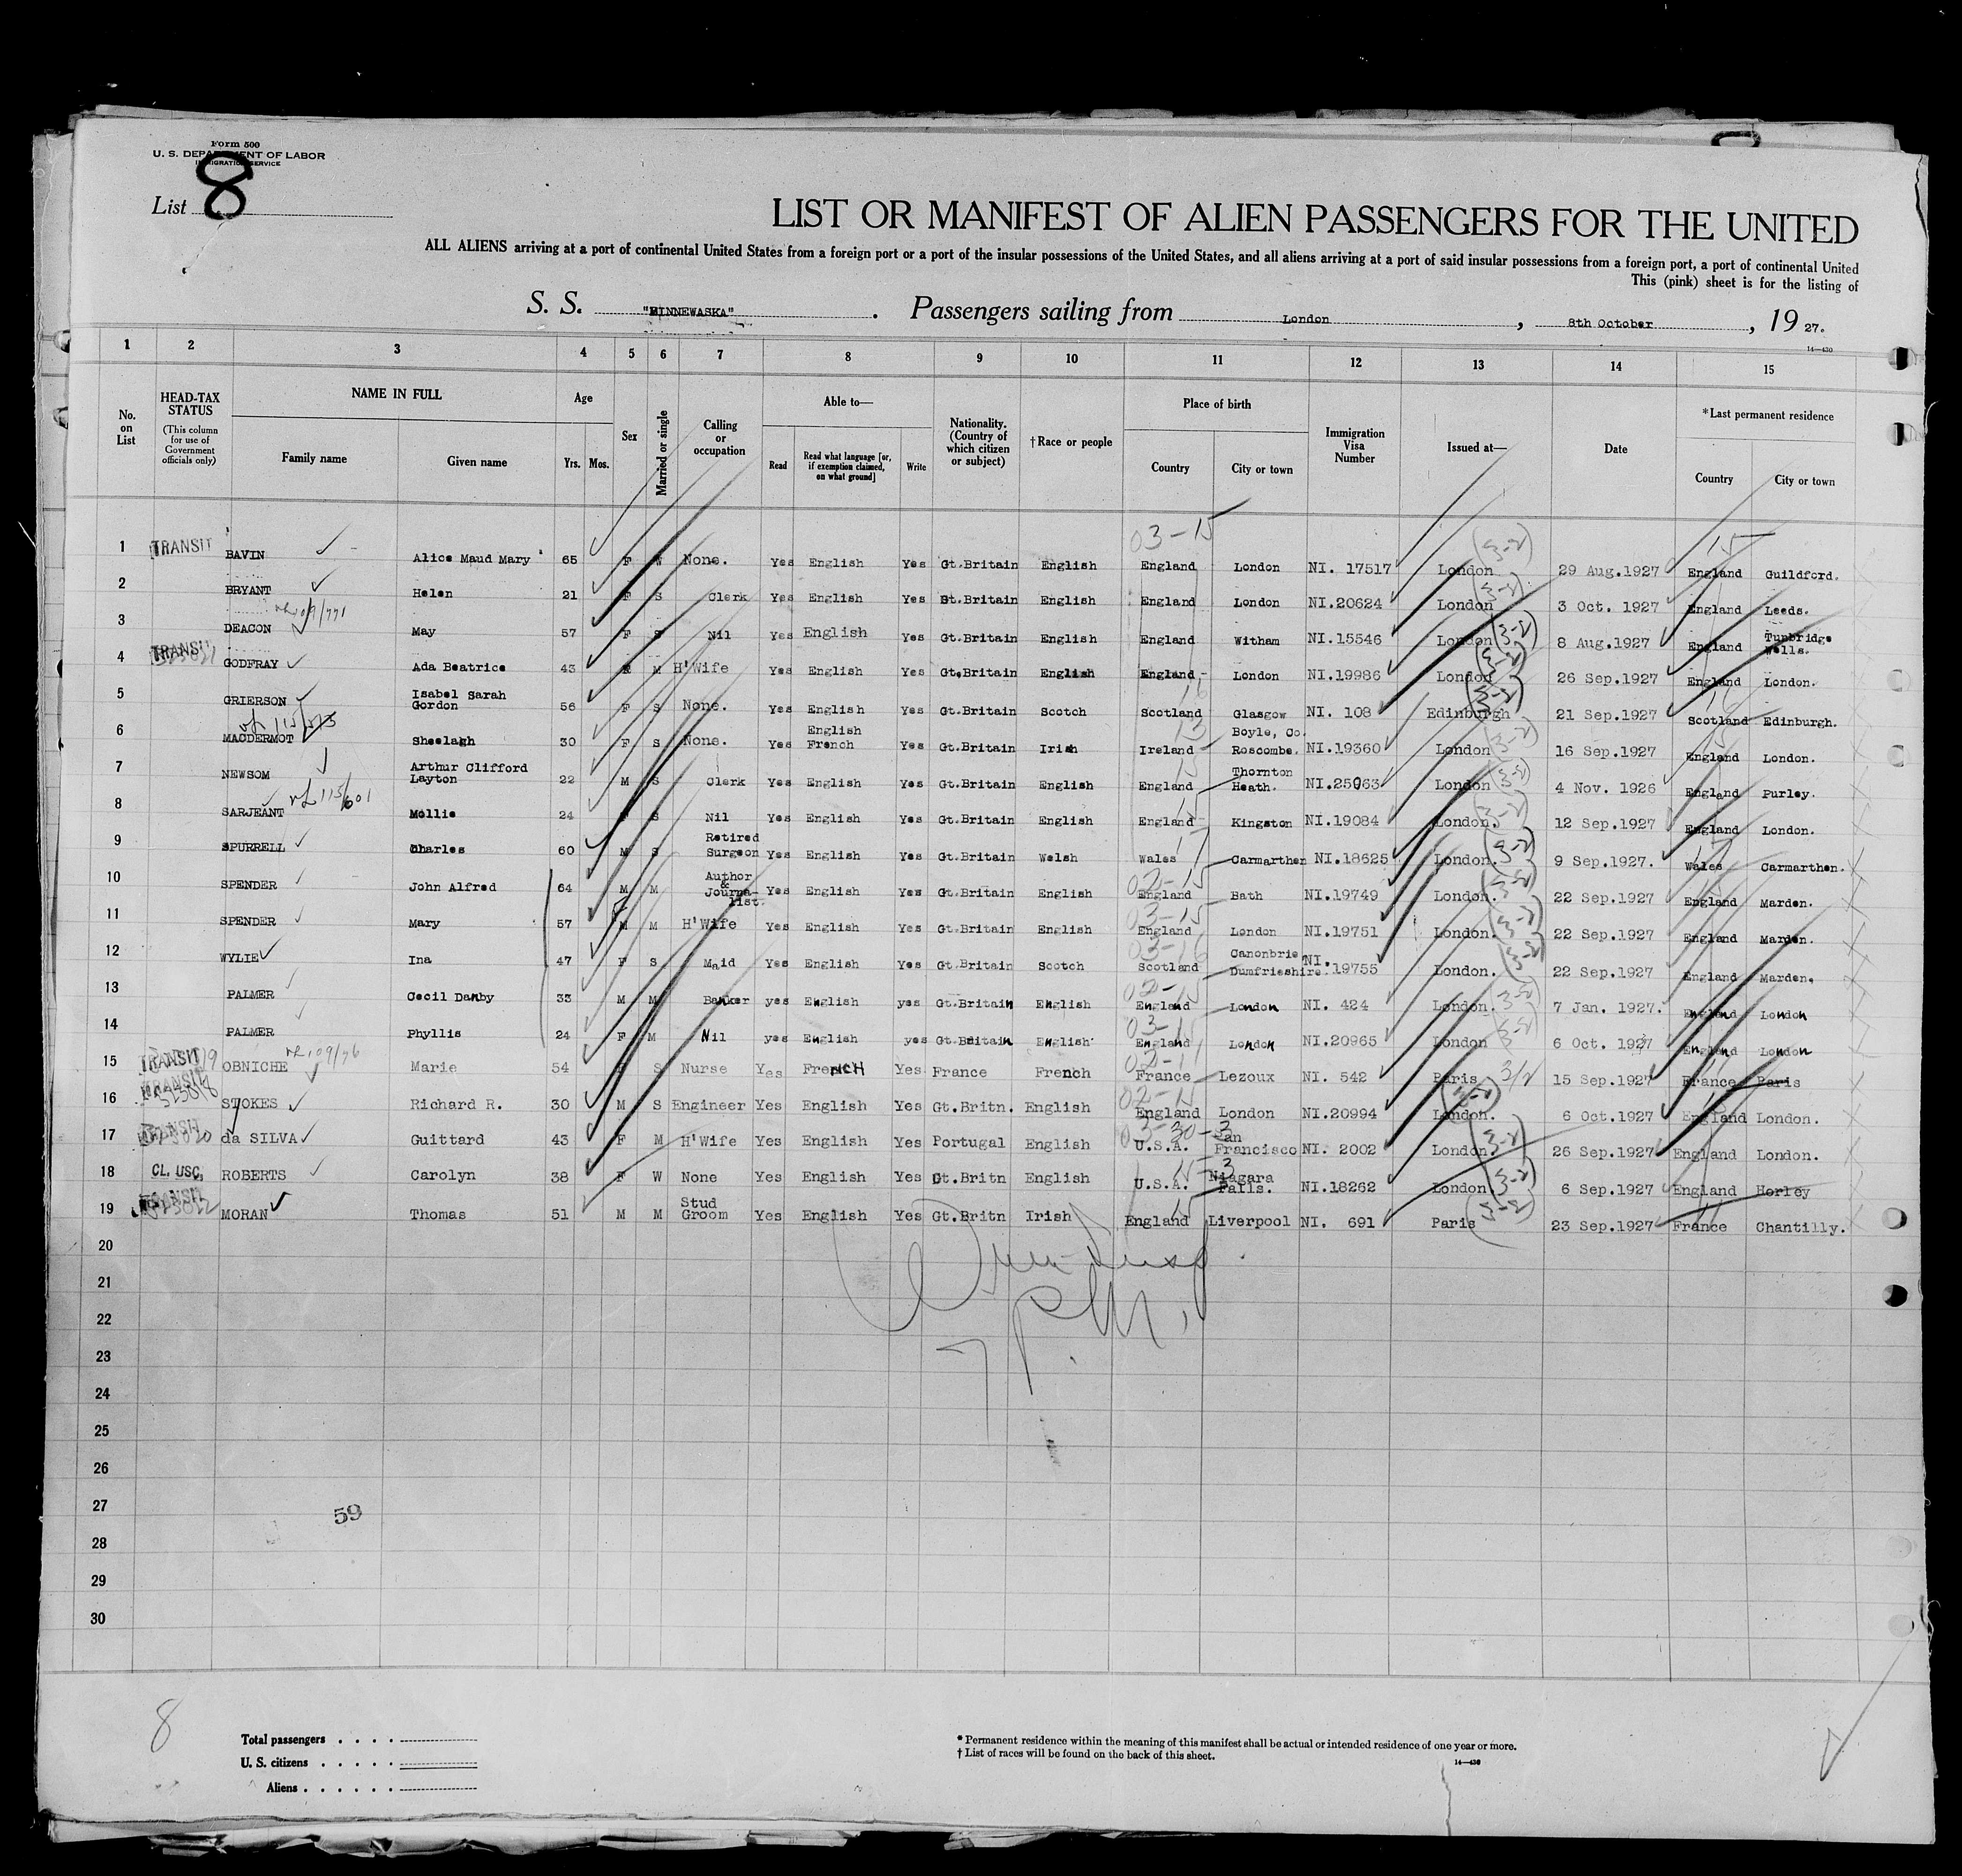 Form 500
U. S. DEPARTMENT OF LABOR
IMMIGRATION SERVICE
List 8
LIST OR MANIFEST OF ALIEN PASSENGERS FOR THE UNITED
ALL ALIENS arriving at a port of continental United States from a foreign port or a port of the insular possessions of the United States, and all aliens arriving at a port of said insular possessions from a foreign port, a port of continental United
This (pink) sheet is for the listing of
S. S. "MINNEWASKA". Passengers sailing from London, 8th October, 19 27.
14—430
1 2 3 4 5 6 7 8 9 10 11 12 13 14 15
No. on List
HEAD-TAX STATUS (This column for use of Government officials only)
NAME IN FULL
Family name Given name
Age
Yrs. Mos.
Sex
Married or single
Calling or occupation
Able to—
Read
Read what language [or, if exemption claimed, on what ground]
Write
Nationality. (Country of which citizen or subject)
†Race or people
Place of birth
Country City or town
Immigration Visa Number
Issued at—
Date
*Last permanent residence
Country City or town
03-15
1 TRANSIT BAVIN Alice Maud Mary 65 F W None. Yes English Yes Gt.Britain English England London NI. 17517 London (3-2) 29 Aug.1927 15 England Guildford.
2 BRYANT Helen 21 F S Clerk Yes English Yes Gt.Britain English England London NI.20624 London (3-2) 3 Oct. 1927 England Leeds.
3 DEACON May 57 F S Nil Yes English Yes Gt.Britain English England Witham NI.15546 London (3-2) 8 Aug.1927 England Tunbridge Wells.
4 TRANSIT GODFRAY Ada Beatrice 43 F M H'Wife Yes English Yes Gt.Britain English England London NI.19986 London (3-2) 26 Sep.1927 England London.
5 GRIERSON Isabel Sarah Gordon 56 F S None. Yes English Yes Gt.Britain Scotch 16 Scotland Glasgow NI. 108 Edinburgh (3-2) 21 Sep.1927 16 Scotland Edinburgh.
6 MACDERMOT Sheelagh 30 F S None. Yes English French Yes Gt.Britain Irish 13 Ireland Boyle, Co. Roscombe. NI.19360 London (3-2) 16 Sep.1927 15 England London.
7 NEWSOM Arthur Clifford Layton 22 M S Clerk Yes English Yes Gt.Britain English 15 England Thornton Heath. NI.25063 London (3-2) 4 Nov. 1926 England Purley.
8 SARJEANT Mollie 24 F S Nil Yes English Yes Gt.Britain English 15 England Kingston NI.19084 London. (3-2) 12 Sep.1927 England London.
9 SPURRELL Charles 60 M S Retired Surgeon Yes English Yes Gt.Britain Welsh 17 Wales Carmarthen NI.18625 London. (3-2) 9 Sep.1927. 17 Wales Carmarthen.
10 SPENDER John Alfred 64 M M Author & Journalist. Yes English Yes Gt.Britain English 02-15 England Bath NI.19749 London. (3-2) 22 Sep.1927 England Marden.
11 SPENDER Mary 57 M M H'Wife Yes English Yes Gt.Britain English 03-15 England London NI.19751 London. (3-2) 22 Sep.1927 England Marden.
12 WYLIE Ina 47 F S Maid Yes English Yes Gt.Britain Scotch 03-16 Scotland Canonbrie Dumfrieshire. NI.19755 London. (3-2) 22 Sep.1927 England Marden.
13 PALMER Cecil Danby 33 M M Banker yes English yes Gt.Britain English 02-15 England London NI. 424 London. (3-2) 7 Jan. 1927. England London
14 PALMER Phyllis 24 F M Nil yes English yes Gt.Britain English 03-15 England London NI.20965 London (3-2) 6 Oct. 1927 England London
15 TRANSIT OBNICHE Marie 54 F S Nurse Yes French Yes France French 02-11 France Lezoux NI. 542 Paris 3/2 15 Sep.1927 France Paris
16 TRANSIT STOKES Richard R. 30 M S Engineer Yes English Yes Gt.Britn. English 02-15 England London NI.20994 London. (3-2) 6 Oct.1927 England London.
17 TRANSIT da SILVA Guittard 43 F M H'Wife Yes English Yes Portugal English 03-30-3 U.S.A. San Francisco NI. 2002 London (3-2) 26 Sep.1927 England London.
18 CL. USC. ROBERTS Carolyn 38 F W None Yes English Yes Gt.Britn English U.S.A. Niagara Falls. NI.18262 London. (3-2) 6 Sep.1927 England Horley
19 TRANSIT MORAN Thomas 51 M M Stud Groom Yes English Yes Gt.Britn Irish 15 England Liverpool NI. 691 Paris (3-2) 23 Sep.1927 France Chantilly.
20
21
22
23
24
25
26
27
59
28
29
30
8
Total passengers . . . .
U. S. citizens . . . . .
Aliens . . . . . .
* Permanent residence within the meaning of this manifest shall be actual or intended residence of one year or more.
† List of races will be found on the back of this sheet.
14—430